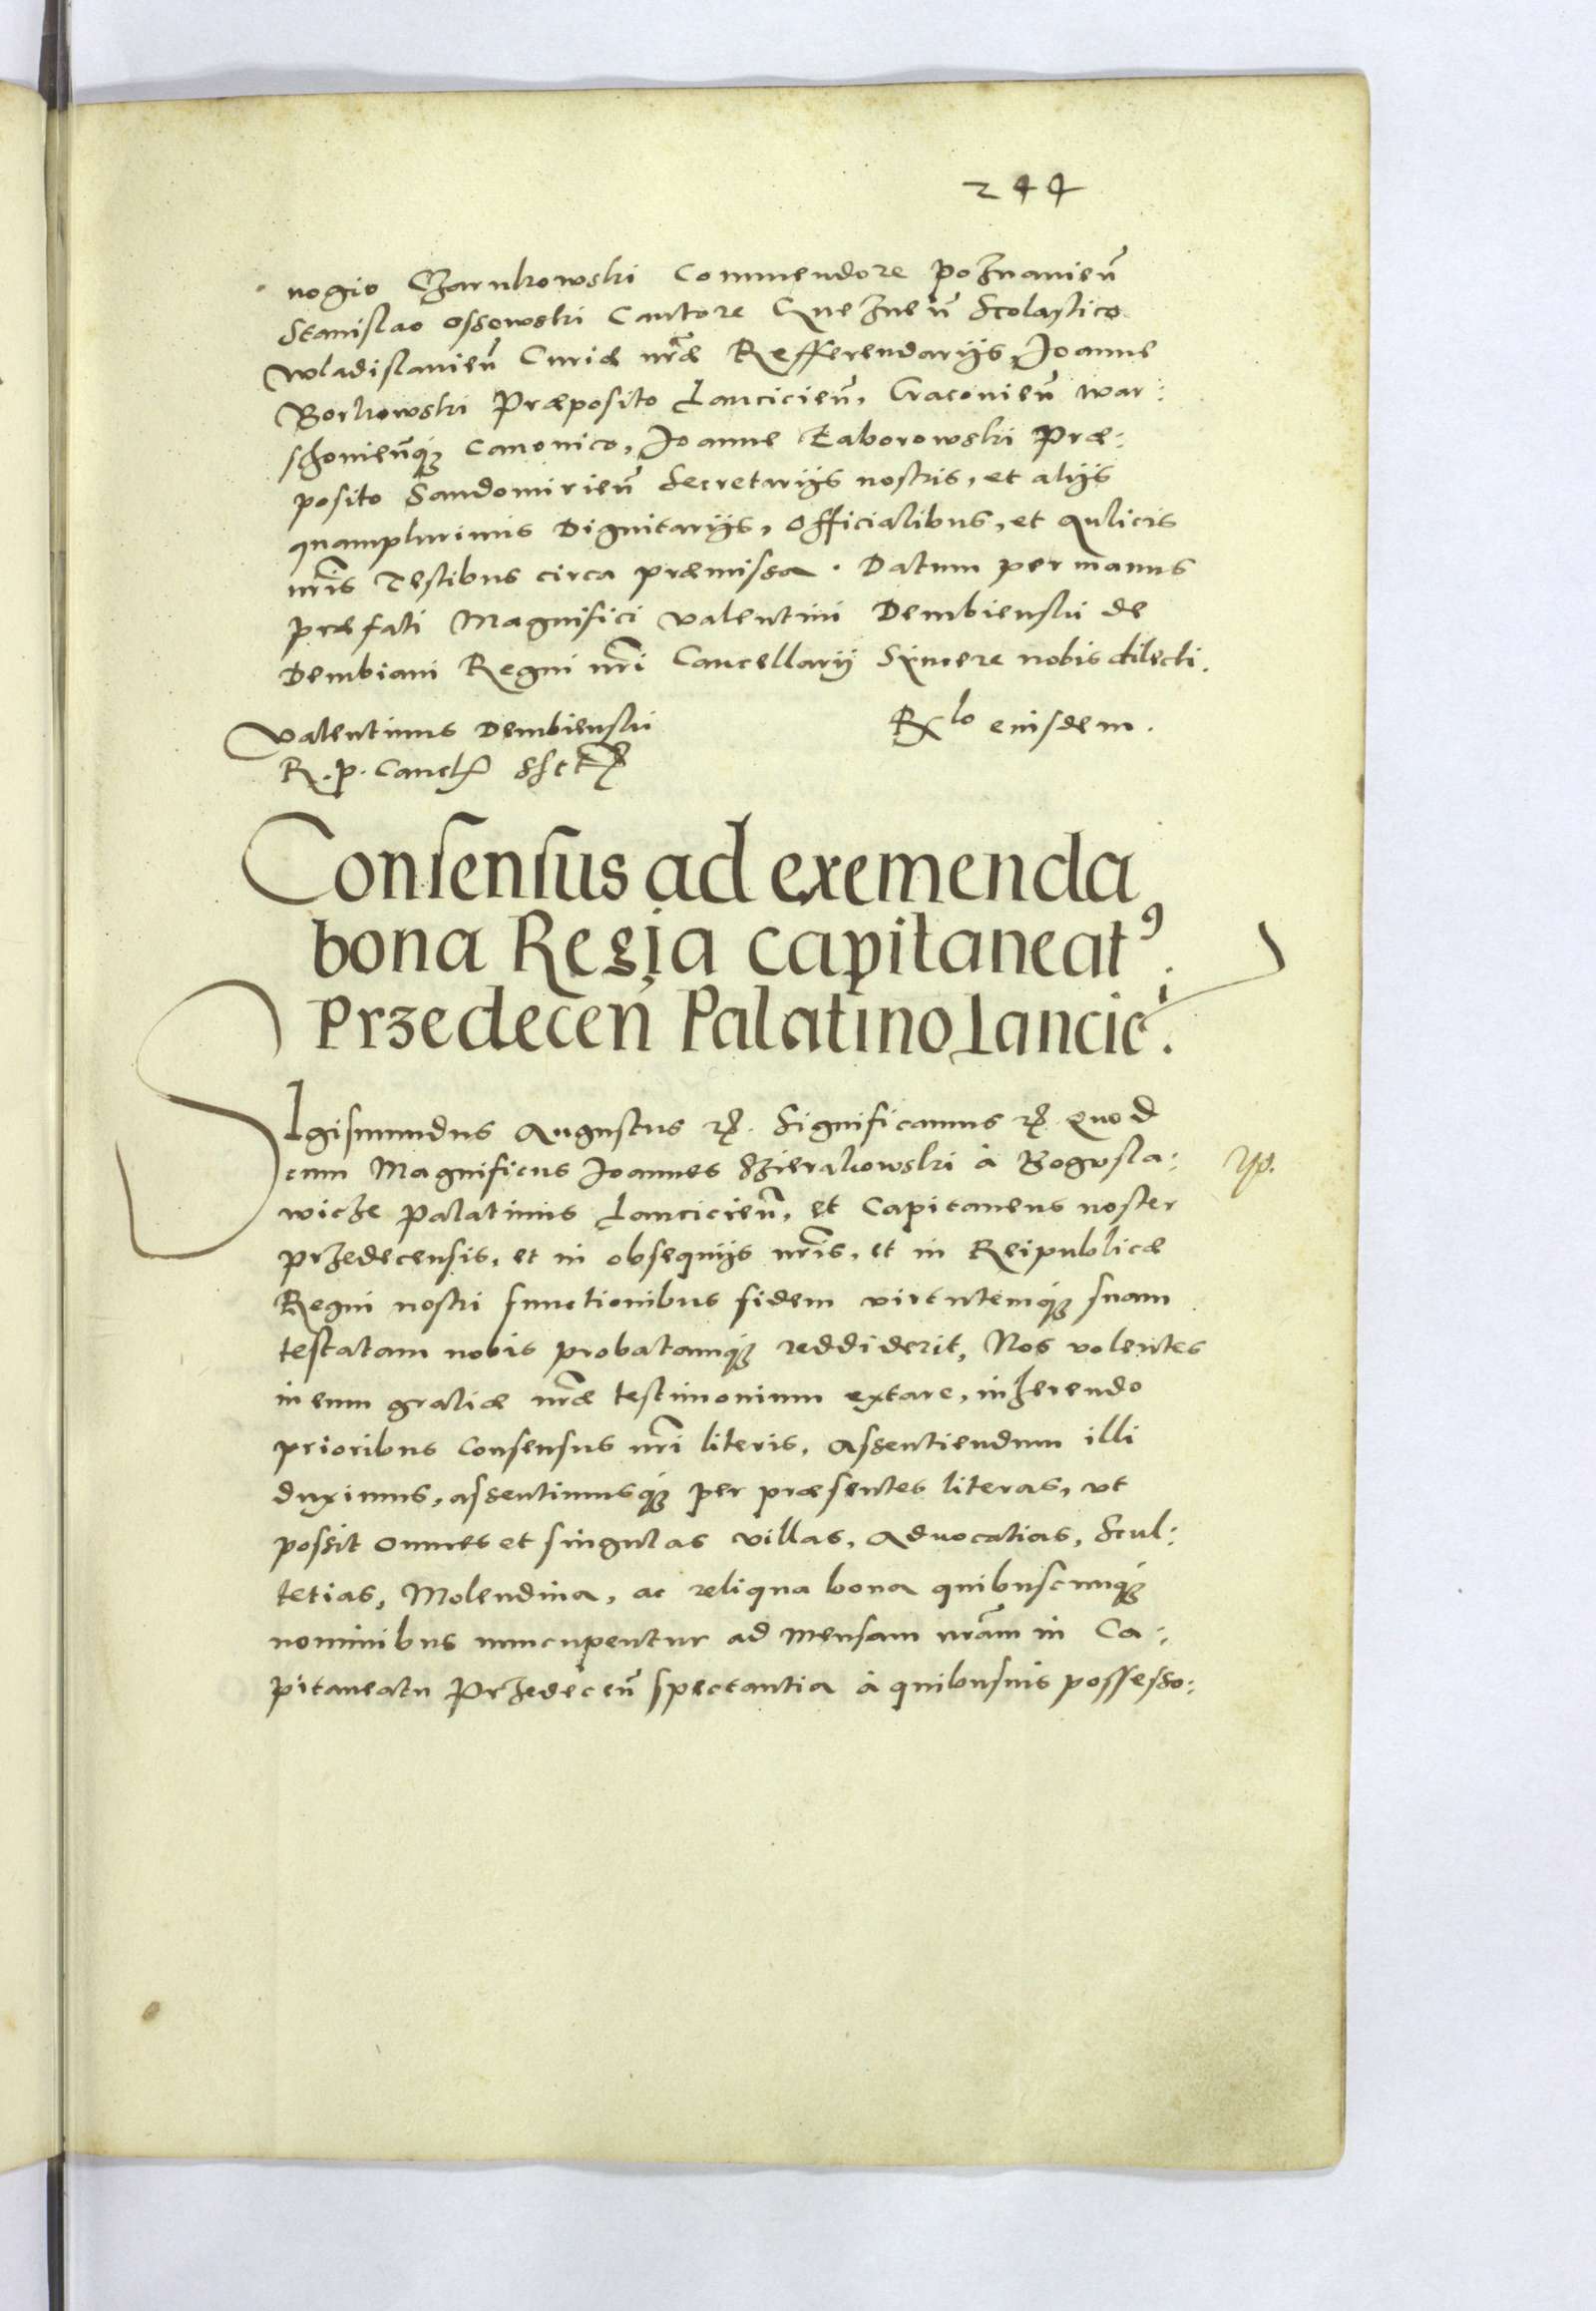 244
nogio Czarnkowski Commendore Poznanien̄
Stanislao Ossowski Cantore Gneznen̄ Scolastico
Wladislauien̄ Curiæ nr̄æ Refferendarijs, Joanne
Borkowski Præposito Lancicien̄, Cracouien̄ War:
schouien̄q3 Canonico, Joanne Taborowski Præ:
posito Sandomirien̄ Secretarijs nostris, et alijs
quamplurimis Dignitarijs, Officialibus, et Aulicis
nr̄is Testibus circa præmissa. Datum per manus
præfati Magnifici Valentini Dembienski de
Dembiani Regni nr̄i Cancellarij Syncere nobis dilecti.
Valentinus Dembienski
R. P. Canclr̄ sst
Rlo eiusdem.
Consensus ad exemenda
bona Regia capitaneatꝰ
Przedecen̄ Palatino Lancic̄.
SIgismundus Augustus ꝛc. Significamus ꝛc. Quod
cum Magnificus Joannes Szierakowski à Bogusla:
wicze Palatinus Lancicien̄, et Capitaneus noster
Przedecensis, et in obsequijs nr̄is, et in Reipublicæ
Regni nostri functionibus fidem virtutemq3 suam
testatam nobis probatamq3 reddiderit, Nos volentes
in eum gratiæ nr̄æ testimonium extare, inherendo
prioribus Consensus nr̄i literis, Assentiendum illi
duximus, assentimusq3 per præsentes literas, vt
possit omnes et singulas villas, Aduocatias, Scul:
tetias, Molendina, ac reliqua bona quibuscunq3
nominibus nuncupentur ad Mensam nr̄am in Ca:
pitaneatu Przedecen̄ spectantia à quibusuis possesso: